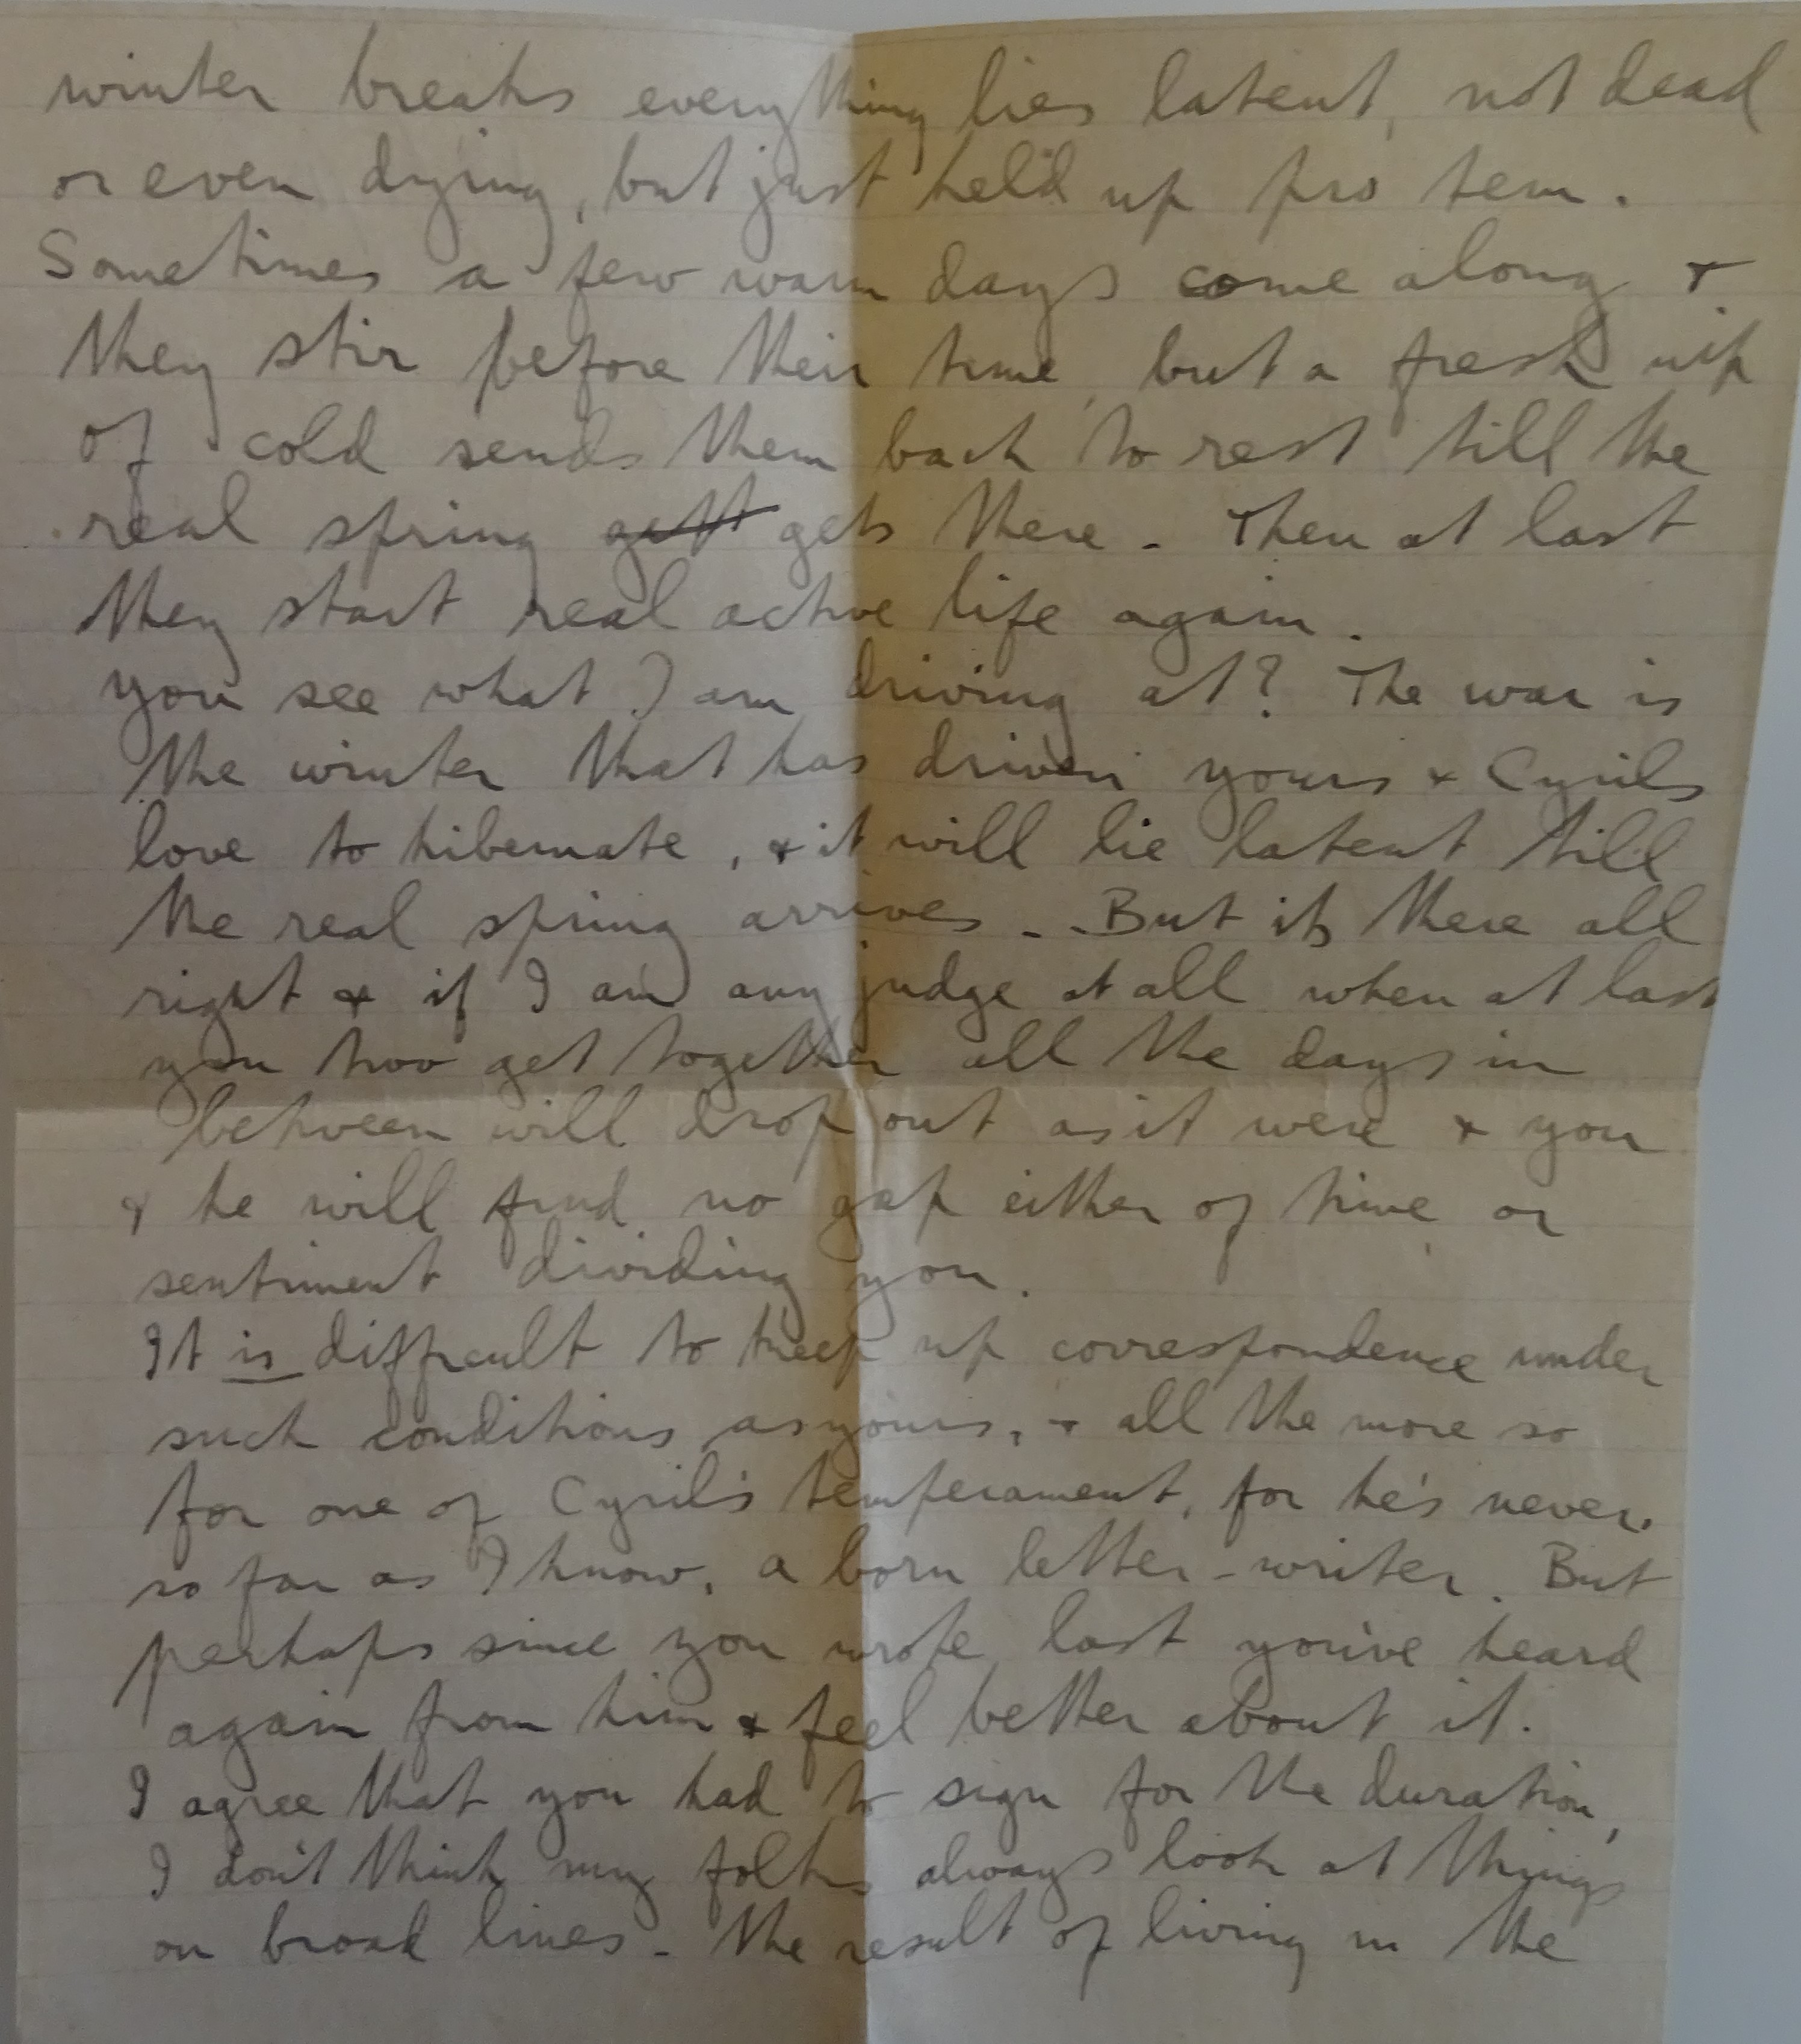 winter breaks everything lies latent, not dead
or even dying, but just held up pro tem.
Sometimes a few warm days come along &
they stir before their time, but a fresh nip
of cold sends them back to rest till the
real spring gett gets there. Then at last
they start real active life again.
you see what I am driving at? The war is
the winter that has driven yours & Cyrils
love to hibernate, & it will lie latent till
the real spring arrives. - But its there all
right & if I am any judge at all when at last
you two get together all the days in
between will drop out as it were & you
& he will find no gap either of time or
sentiment dividing you.
It is difficult to keep up correspondence under
such conditions as yours, & all the more so
for one of Cyril's temperament, for he's never,
so far as I know, a born letter-writer. But
perhaps since you wrote last you've heard
again from him & feel better about it.
I agree that you had to sign for the duration,
I don't think my folks always look at things
on broad lines - the result of living in the